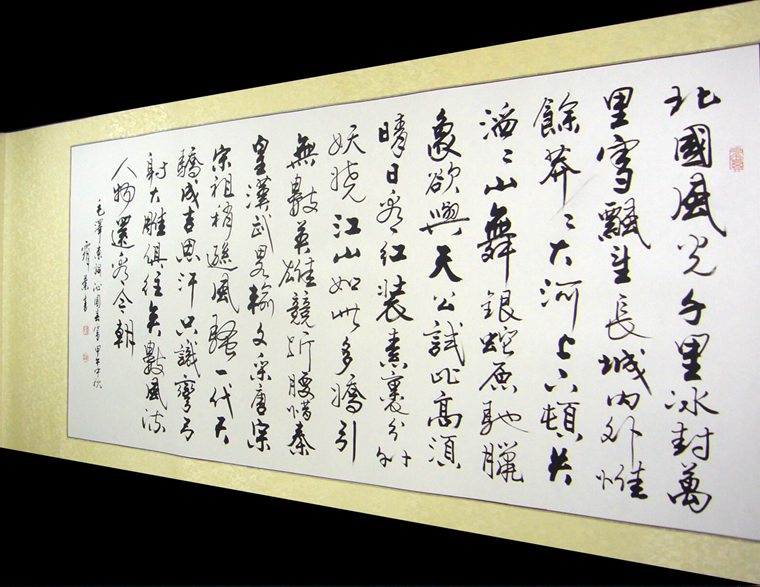 北國風光千里冰封萬
里雪飄望長城內外惟
餘莽〻大河上下頓失
滔〻山舞銀蛇原馳臘
象欲與天公試比高須
晴日看紅裝素裹分外
妖嬈江山如此多嬌引
無數英雄競折腰惜秦
皇漢武略輸文采唐宗
宋祖稍遜風騷一代天
驕成吉思汗只識彎弓
射大雕俱往矣數風流
人物還看今朝
毛澤東詞沁園春雪甲午中秋